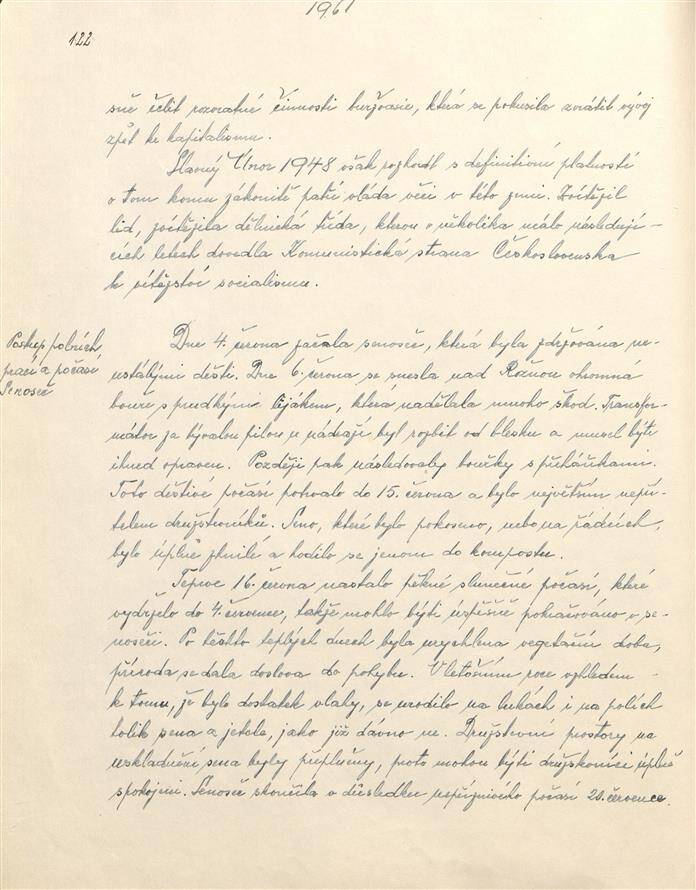 1961
122
sně čelit rozvratné činnosti buržoasie, která se pokusila zvrátit vývoj
zpět ke kapitalismu.
Slavný Únor 1948 však rozhodl s definitivní platností
o tom komu zákonitě patří vláda věcí v této zemi. Zvítězil
lid, zvítězila dělnická třída, kterou v několika málo následují-
cích letech dovedla Komunistická strana Československa
k vítězství socialismu.
Postup polních
prací a počasí
Senoseč
Dne 4. června začala senoseč, která byla zdržována ne-
ustálými dešti. Dne 6. června se snesla nad Rožnou ohromná
bouře s prudkým lijákem, která nadělala mnoho škod. Transfor-
mátor za bývalou pilou u nádraží byl rozbit od blesku a musel býti
ihned opraven. Později pak následovaly bouřky s přeháňkami.
Toto deštivé počasí potrvalo do 15. června a bylo největším nepří-
telem družstevníků. Seno, které bylo pokoseno, nebo na řádcích,
bylo úplně shnilé a hodilo se jenom do kompostu.
Teprve 16. června nastalo pěkné slunečné počasí, které
vydrželo do 4. července, takže mohlo býti úspěšně pokračováno v se-
noseči. Po těchto teplých dnech byla urychlena vegetační doba,
příroda se dala doslova do pohybu. V letošním roce vzhledem
k tomu, že bylo dostatek vláhy, se urodilo na lukách i na polích
tolik sena a jetele, jako již dávno ne. Družstevní prostory na
uskladnění sena byly přeplněny, proto mohou býti družstevníci úplně
spokojeni. Senoseč skončila v důsledku nepříznivého počasí 20. července.